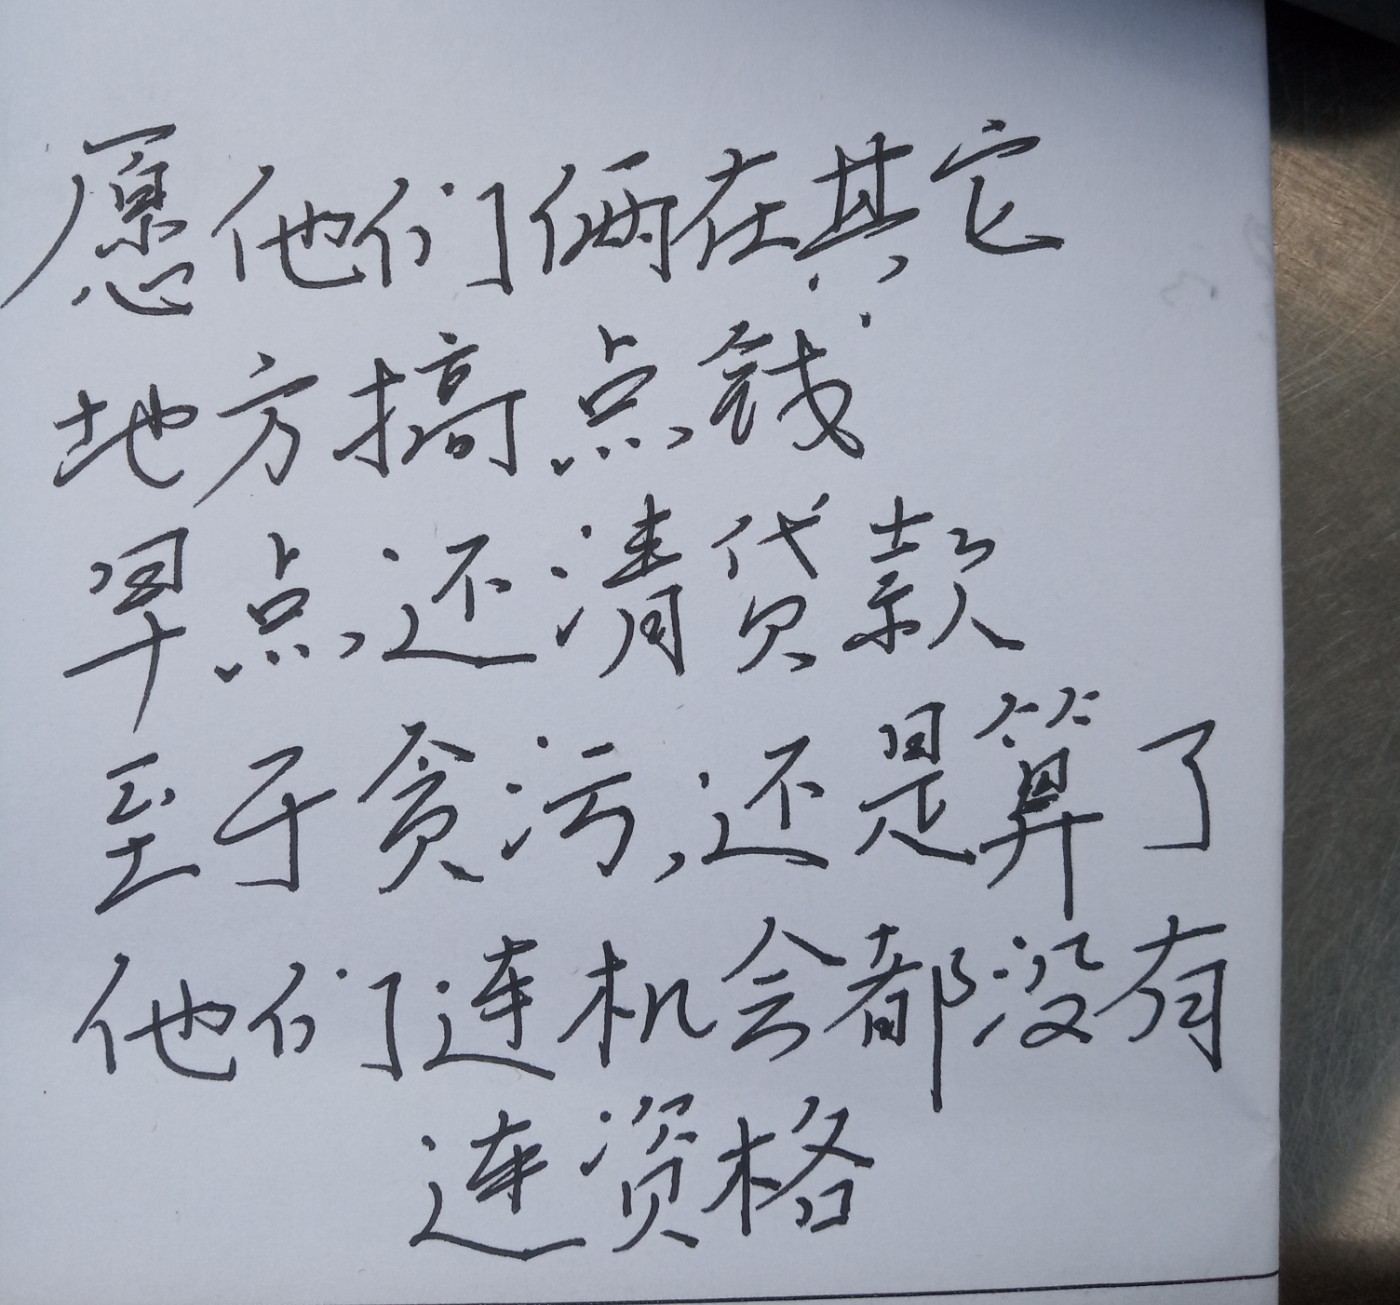 愿他们俩在其它
地方搞点钱
早点还清贷款
至于贪污,还是算了
他们连机会都没有
连资格